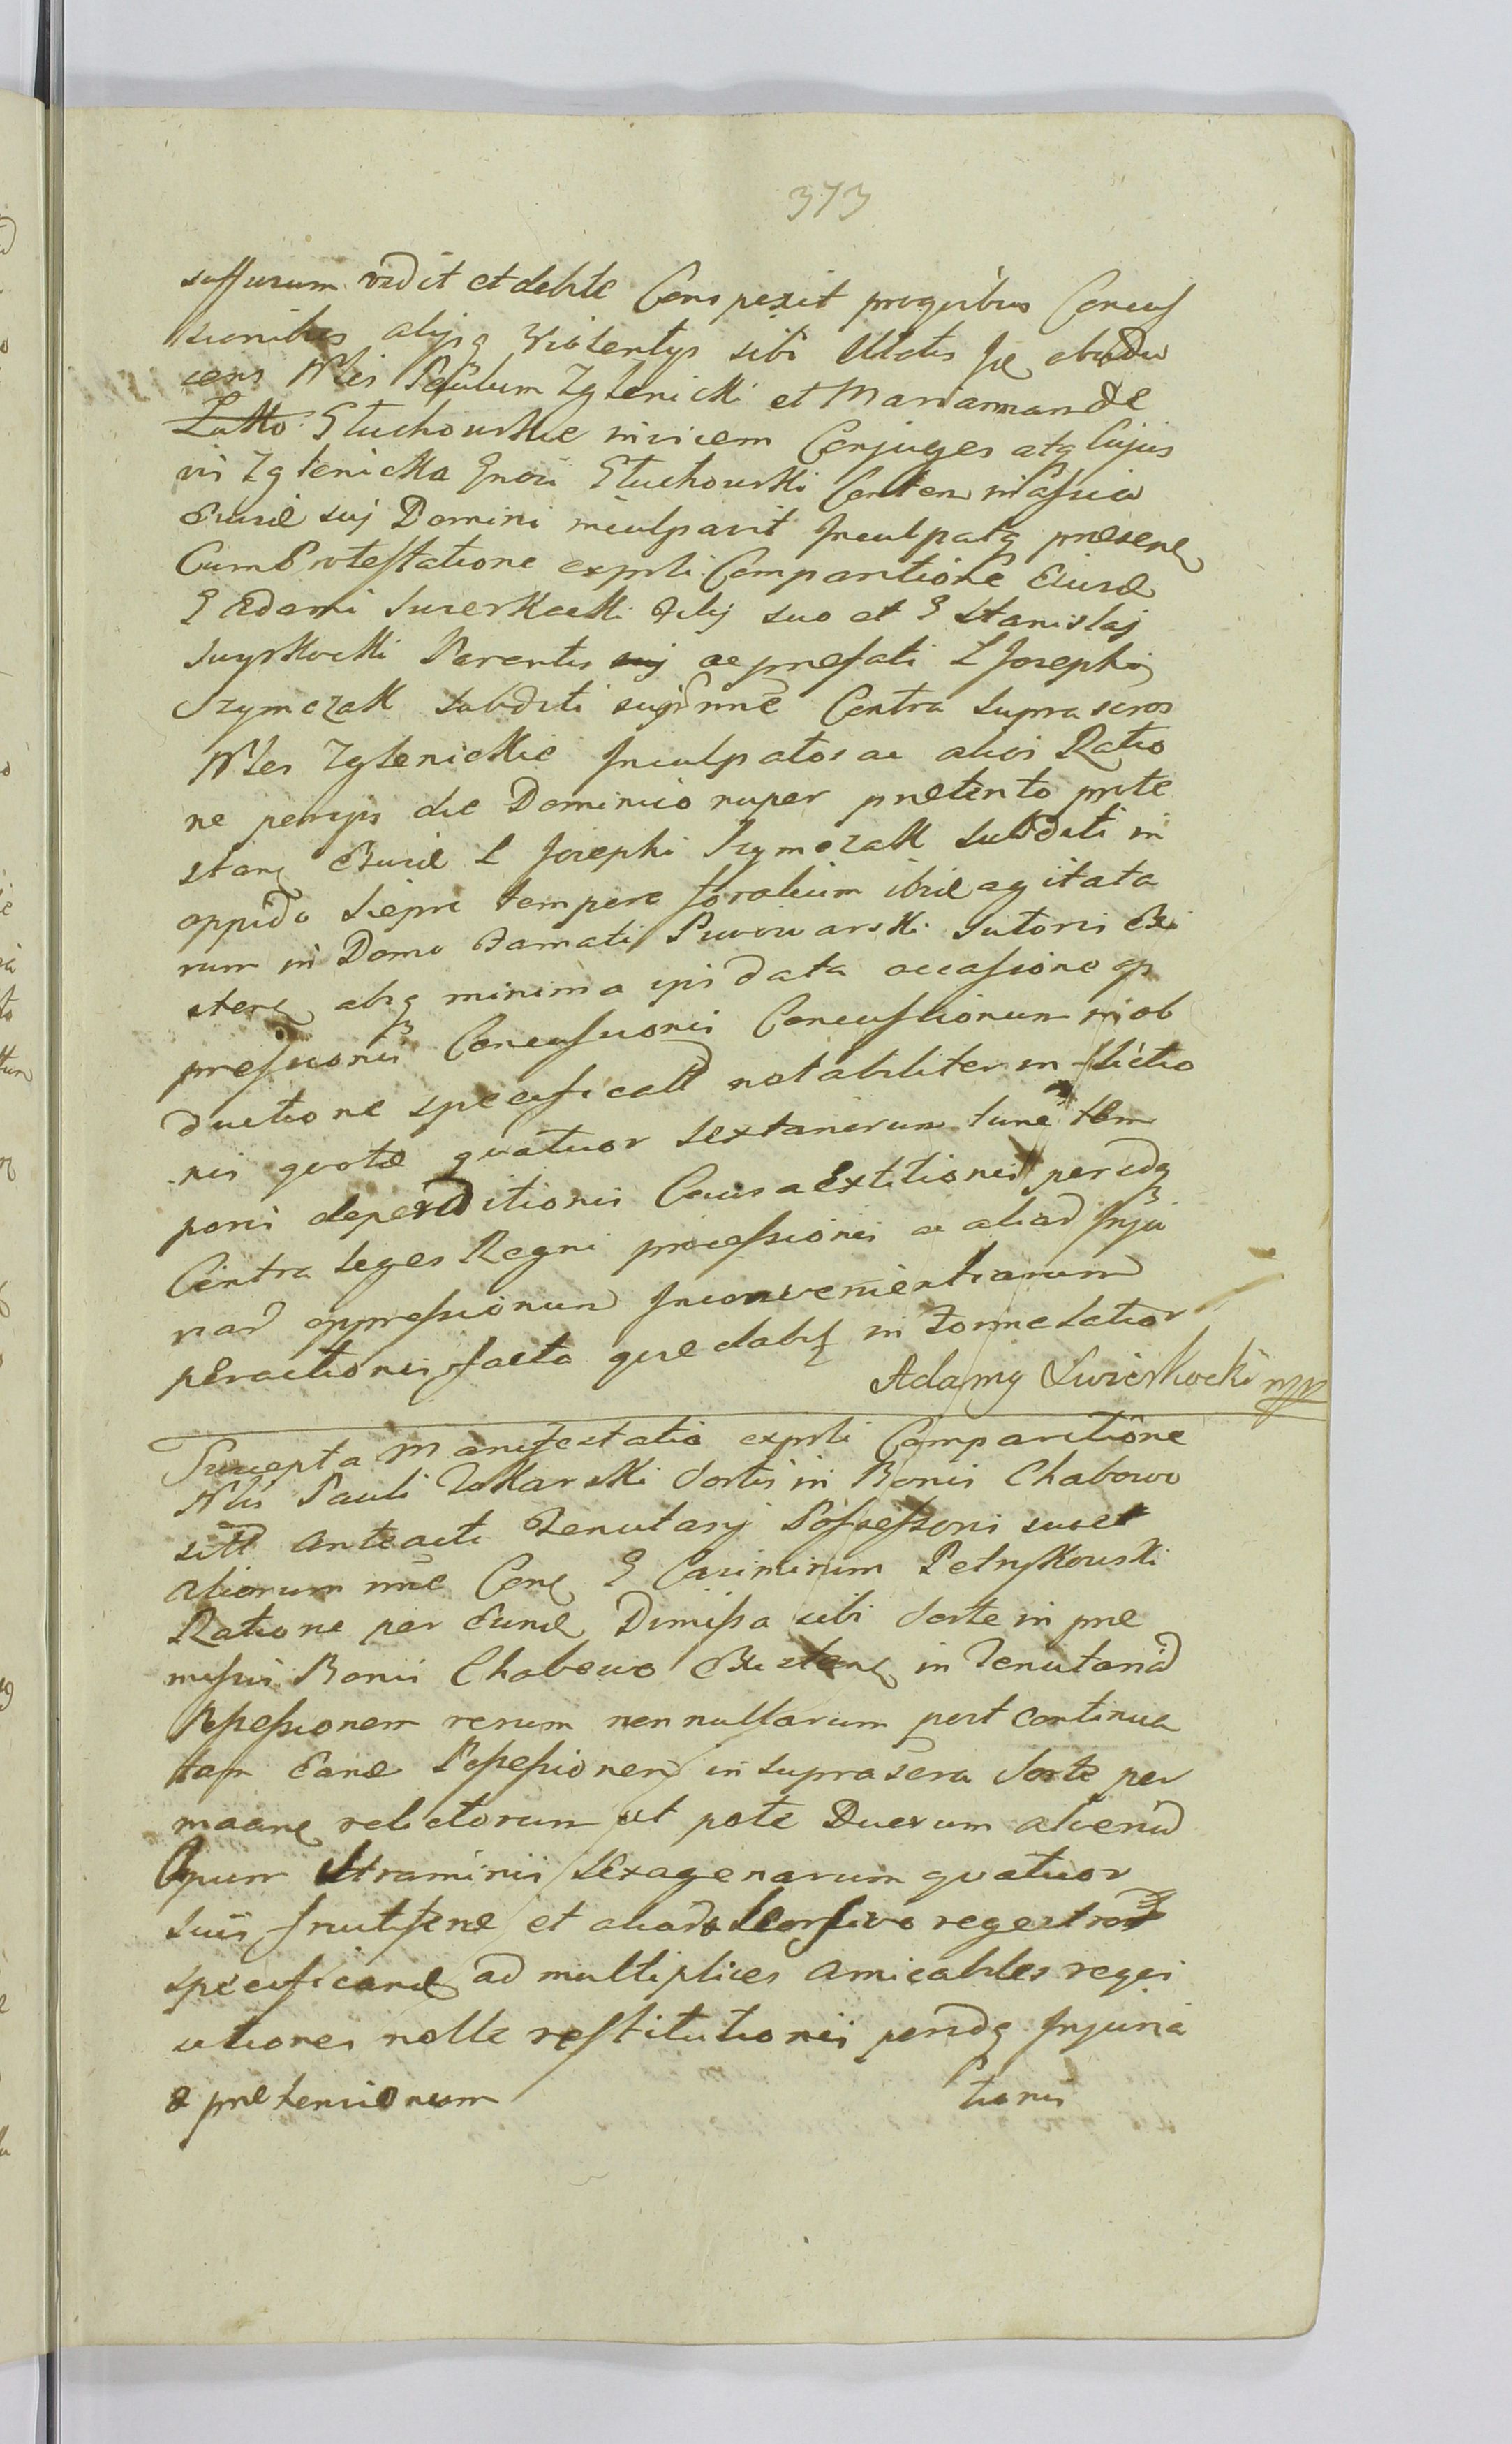 373
suffusum vidit et debite Conspexit pro quibus Concus
sionibus alijsq violentijs sibi illatis se obindu
cens Nbles Paulum Zglenicki et Mariannam de
Zatto Głuchowskie invicem Conjuges atq Cujus
vis Zglenicka Gnosi Głuchowski
Eund sui Domini inculpavit Inculpatq presene
Cum Protestatione exprti Comparitione Ejusd
G Adami Swierkocki filij suo et G Stanislaj
Swyrkocki Parentis suj ac prefati L Josephi
Szymczak Subditi suj nne Contra suprascros
Nbles Zglenickie Inculpatos ac alios Ratio
ne per ips die Dominico nuper pretento prote
stane Eund L Josephi Szymczak Subditi in
oppido Siepre tempore foralium ibid agitata
rum in Domo Famati Piwowarski Sutoris Exi
stene absq minima ipsi data occasione op
pressionis Concussionis Concussionum in ob
ductione specificatt notabiliter inflictio
nis quote quatuor sextanorum tunc tem
poris deperditionis Causa Extitionis peridq
Contra leges Regni processionis ac aliad Inju
riad oppressionum Inconvenientiarum
peractionis facta que dabit in Forma Latior
Adamy Swierkocki mpp
Suscepta Manifestatio exprti Comparitione
Nblis Pauli Tokarski Sortis in Bonis Chabowo
sitt anteacti Tenutarij Possessoris suo et
aliorum nne Cone G Casimirum Petrykowski
Ratione per Eund Dimissa sibi Sorte in pre
missis Bonis Chabowo Existene in Tenutariad
Possessionem rerum nonnullarum post continua
tam Eand Possessionem in suprascra Sorte per
maane relictorum ut pote Duorum alvearid
Apum Straminis Sexagenarum quatuor
suis et aliad Seorsivo regestro
specificand ad multiplices amicabiles requi
sitiones nolle restitutionis peridq Injuria
& pretensionum
tionis